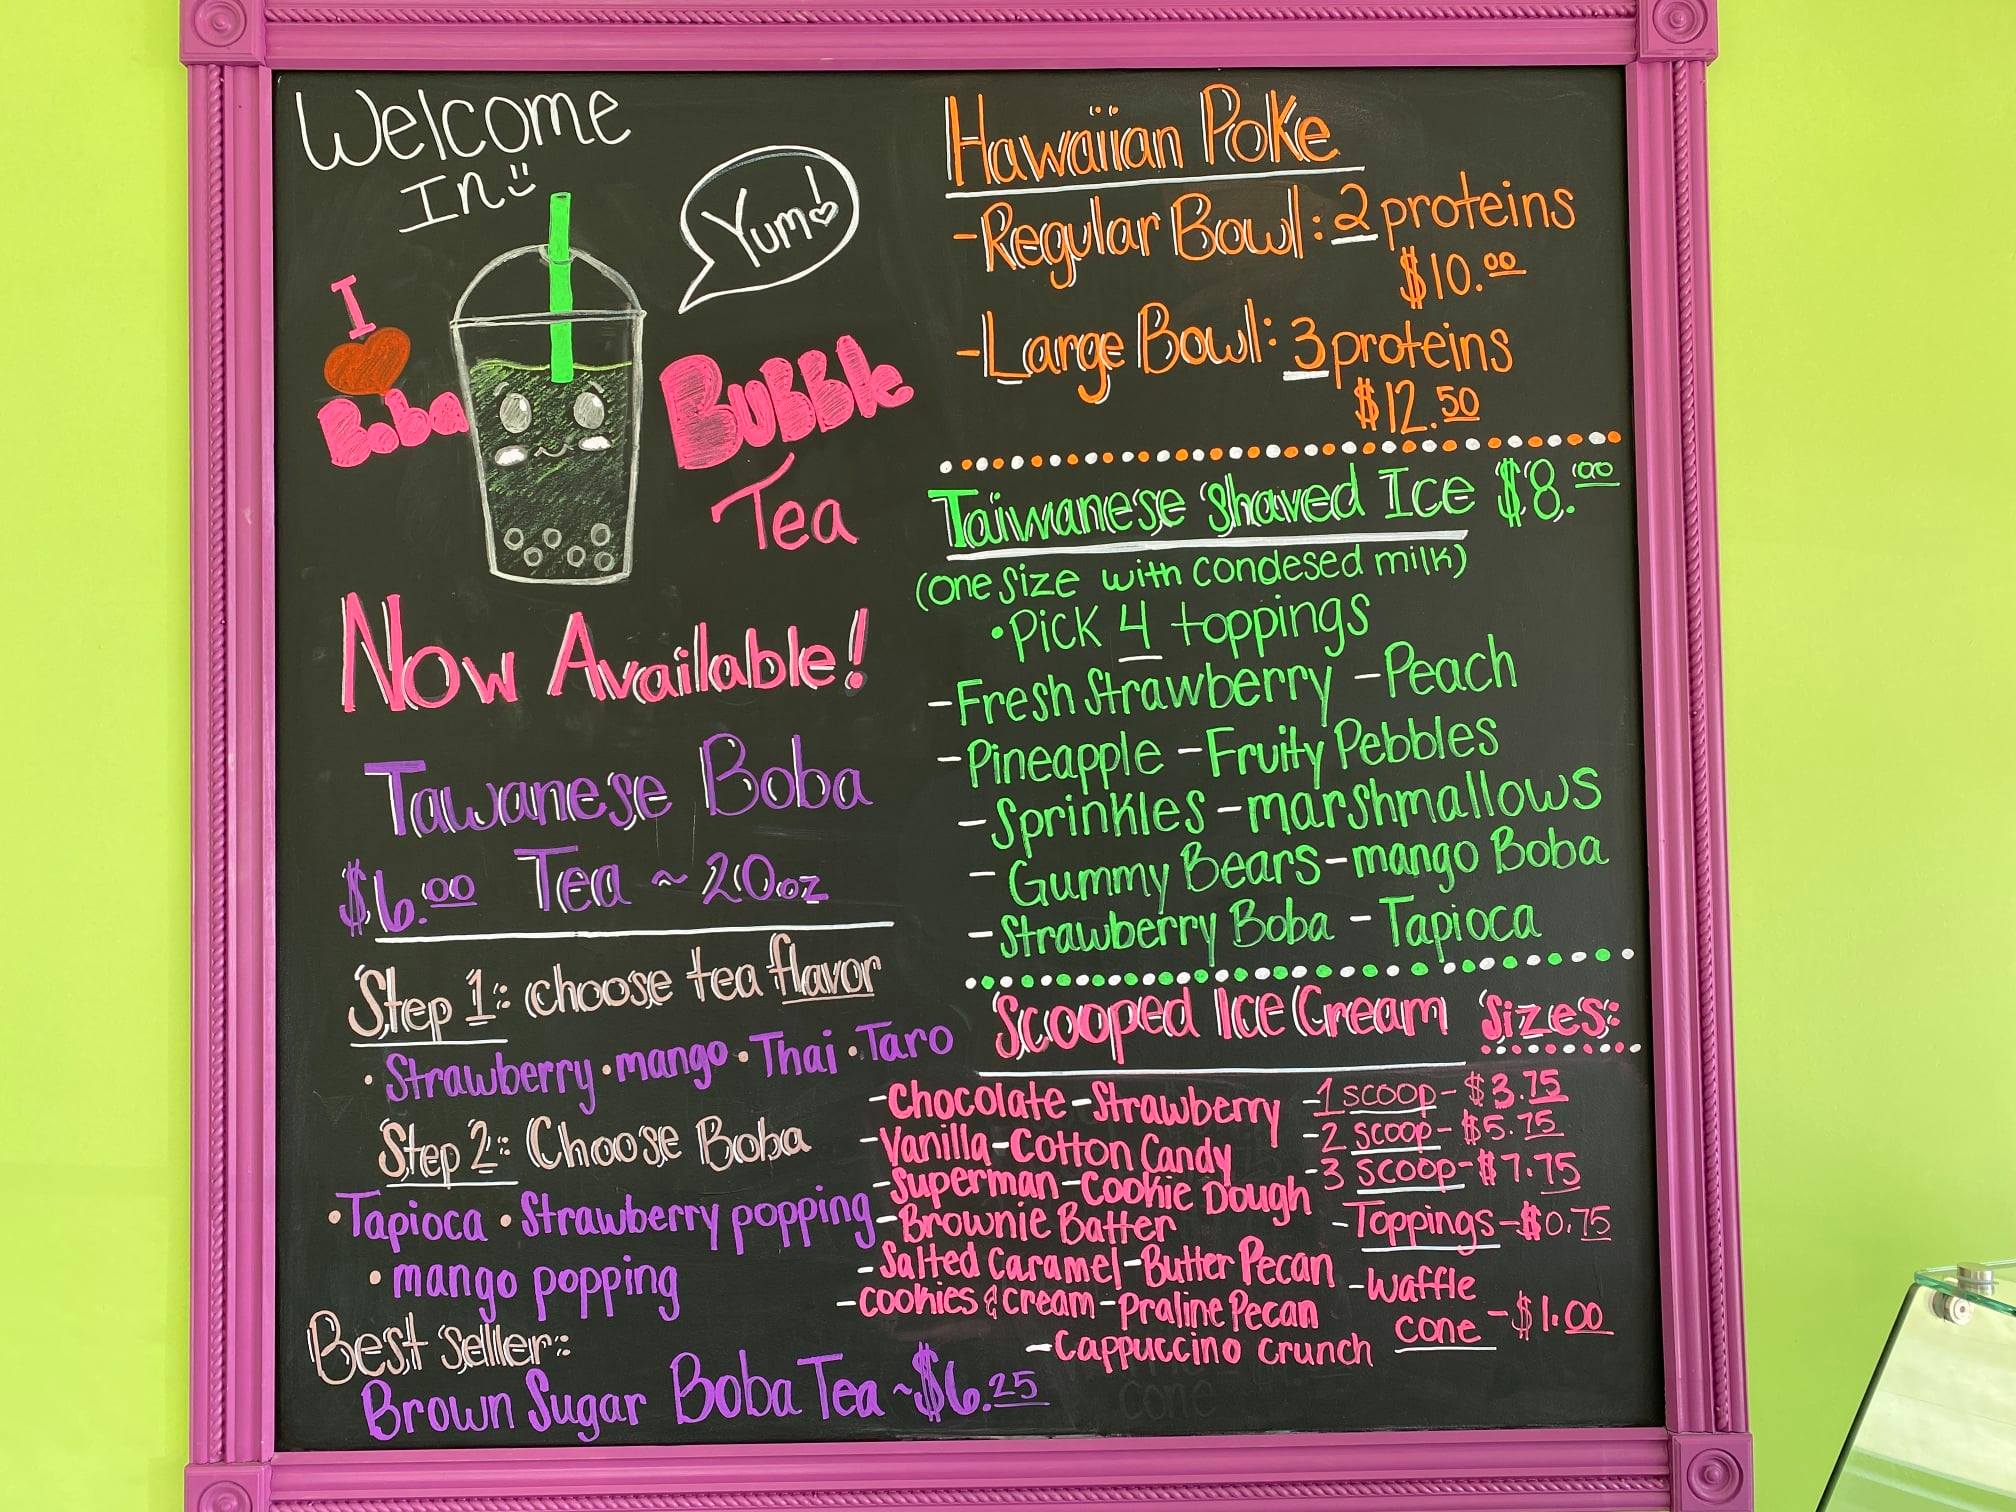 Welcome
In
Yum!
I
Boba
Bubble
Tea
Now Available!
Tawanese Boba
$6.00 Tea ~ 20oz
Step 1: choose tea flavor
• Strawberry • mango • Thai • Taro
Step 2: Choose Boba
• Tapioca • Strawberry popping
• mango popping
Best seller:
Brown Sugar Boba Tea ~ $6.25
Hawaiian Poke
- Regular Bowl: 2 proteins
$10.00
- Large Bowl: 3 proteins
$12.50
Taiwanese shaved Ice $8.00
(one size with condesed milk)
• Pick 4 toppings
- Fresh Strawberry - Peach
- Pineapple - Fruity Pebbles
- Sprinkles - marshmallows
- Gummy Bears - mango Boba
- Strawberry Boba - Tapioca
Scooped Ice Cream
- Chocolate - Strawberry
- Vanilla - Cotton Candy
- Superman - Cookie Dough
- Brownie Batter
- Salted Caramel - Butter Pecan
- Cookies & cream - Praline Pecan
- Cappuccino crunch
Sizes:
- 1 scoop - $3.75
- 2 scoop - $5.75
- 3 scoop - $7.75
- Toppings - $0.75
- waffle
cone - $1.00
cone